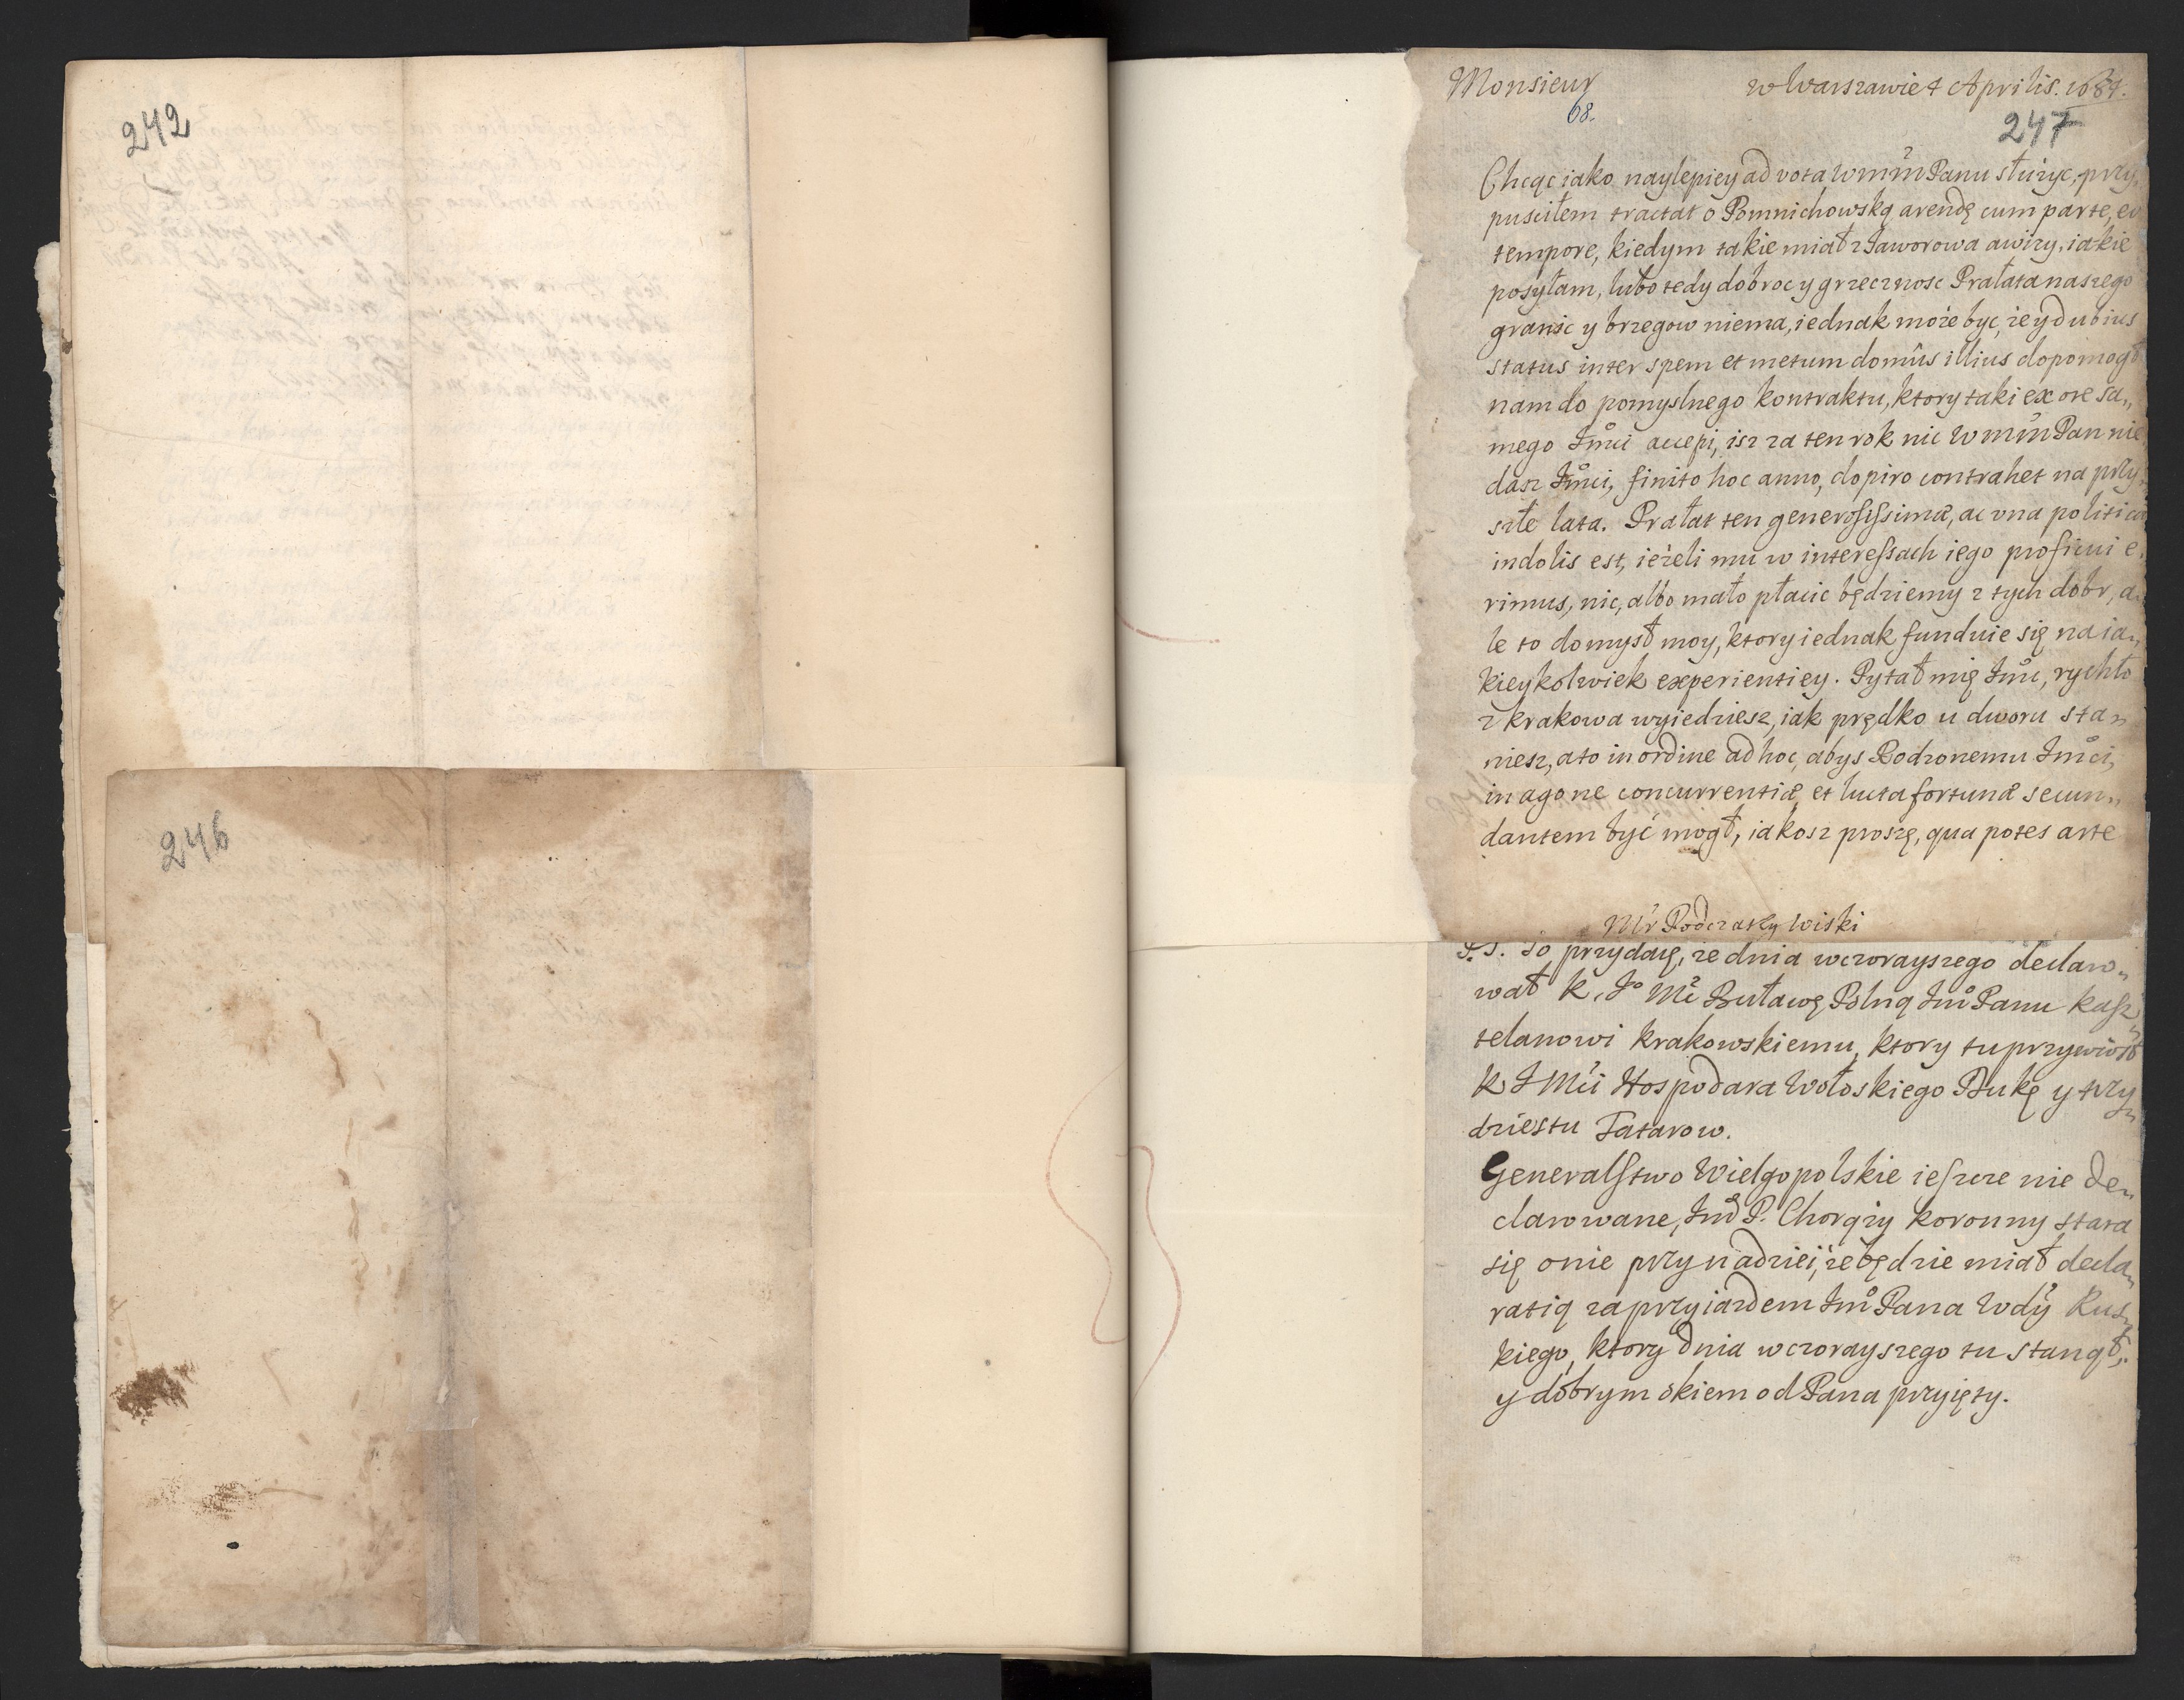 242
246
Monsieur w Warszawie 4 Aprilis. 1684.
68.
247
Chcąc iako naylepiey ad vota WMM Panu służyc, przy„
pusciłem tractat o Pomnichowską arendę cum parte, eo
tempore, kiedym takie miał z Jaworowa awizy, iakie
posyłam, lubo tedy dobroc y grzecznosc Prałata naszego
granic y brzegow niema, iednak może byc, że y dubius
status inter spem et metum domûs illius dopomogł
nam do pomyslnego kontraktu, ktory taki ex ore sa„
mego Jmci accepi, isz za ten rok nic WMM Pan nie
dasz Jmci, finito hoc anno, dopiro contrahet na przy„
szłe lata. Prałat ten generosissimæ, ac una politicæ
indolis est, ieżeli mu w interessach iego proficui e„
rimus, nic, albo mało płacic będziemy z tych dobr, a„
le to domysł moy, ktory iednak funduie się na ia„
kieykolwiek experientiey. Pytał mię Jmc, rychło
z krakowa wyiedziesz, iak prędko u dworu sta„
niesz, a to in ordine ad hoc, abys Rodzonemu Jmci,
in agone concurrentiæ et lucta fortunæ secun„
dantem być mogł, iakosz proszę, qua potes arte
Mr Podczaszy Wiski
P.S. To przydaię, że dnia wczorayszego declaro„
wał K. Jo Mc Buławę Polną Jm Panu Kasz„
telanowi krakowskiemu, ktory tu przywiozł
K J Mci Hospodara Wołoskiego Dukę y trzy„
dziestu Tatarow.
Generalstwo Wielgopolskie ieszcze nie de„
clarowane, Jm P. Chorąży koronny stara
się onie przy nadziei, że będzie miał decla„
ratią za przyiazdem Jm Pana Wdy Rus„
kiego, ktory dnia wczorayszego tu stanął,
y dobrym okiem od Pana przyięty.